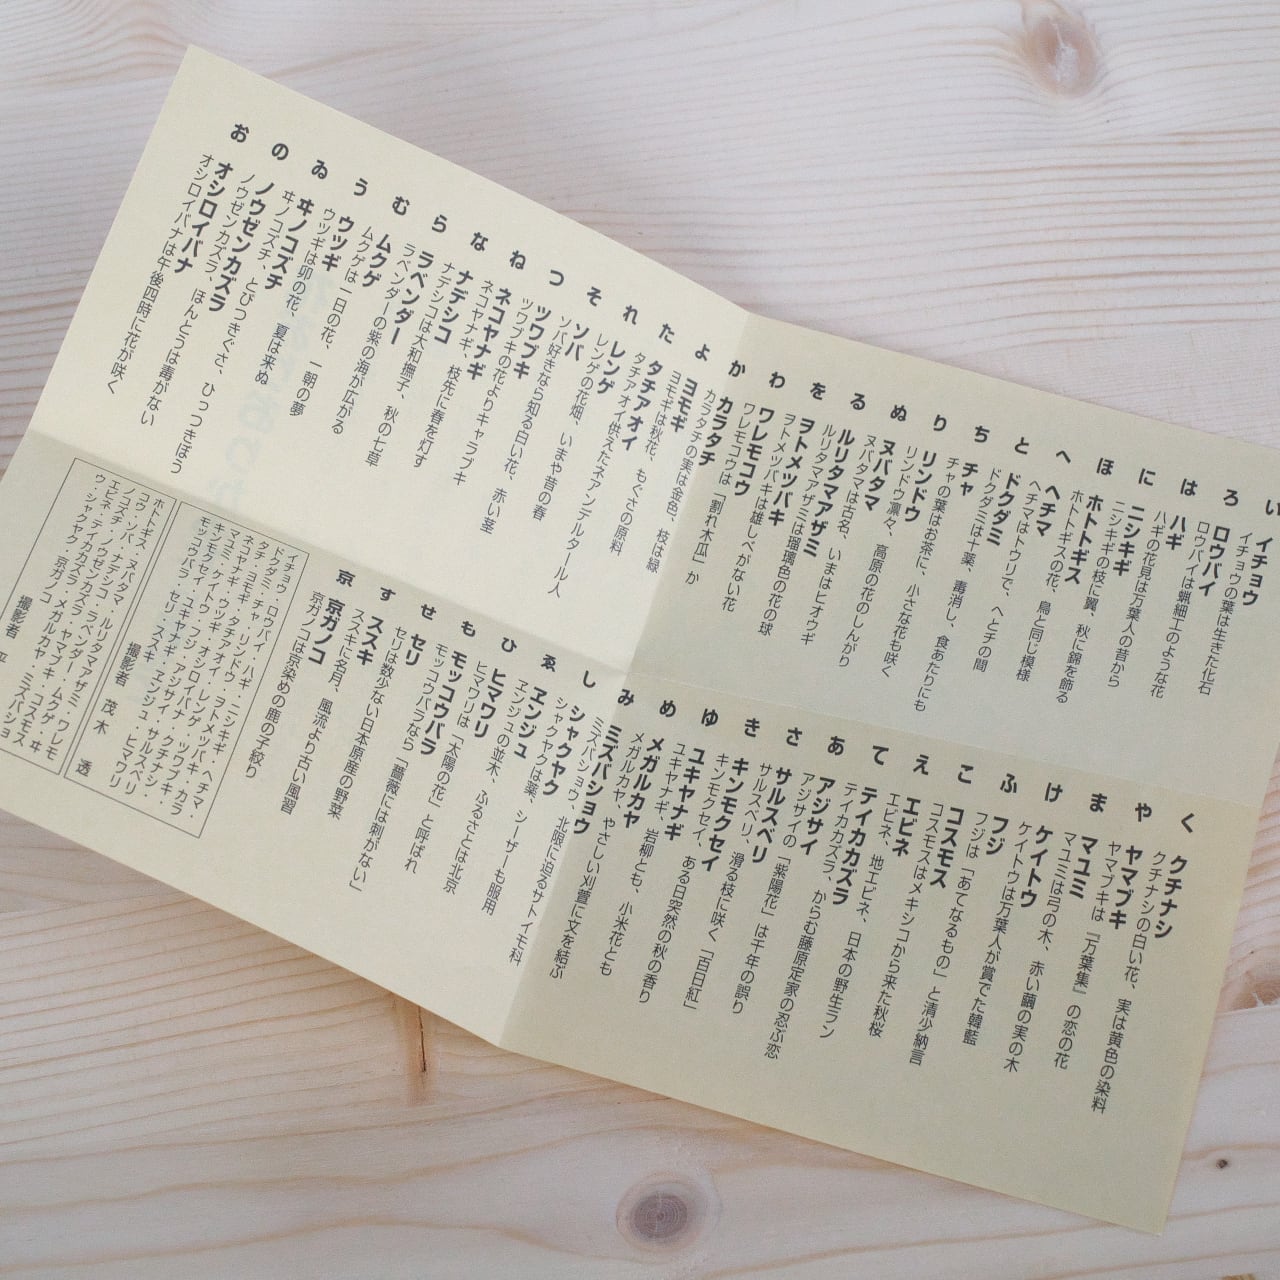 い
イチョウ
イチョウの葉は生きた化石
ろ
ロウバイ
ロウバイは蝋細工のような花
は
ハギ
ハギの花見は万葉人の昔から
に
ニシキギ
ニシキギの枝に翼、秋に錦を飾る
ほ
ホトトギス
ホトトギスの花、鳥と同じ模様
へ
ヘチマ
ヘチマはトウリで、へとチの間
と
ドクダミ
ドクダミは十薬、毒消し、食あたりにも
ち
チャ
チャの葉はお茶に、小さな花も咲く
り
リンドウ
リンドウ凛々、高原の花のしんがり
ぬ
ヌバタマ
ヌバタマは古名、いまはヒオウギ
る
ルリタマアザミ
ルリタマアザミは瑠璃色の花の球
を
ヲトメツバキ
ヲトメツバキは雄しべがない花
わ
ワレモコウ
ワレモコウは「割れ木瓜」か
か
カラタチ
カラタチの実は金色、枝は緑
よ
ヨモギ
ヨモギは秋花、もぐさの原料
た
タチアオイ
タチアオイ供えたネアンデルタール人
れ
レンゲ
レンゲの花畑、いまや昔の春
そ
ソバ
ソバ好きなら知る白い花、赤い茎
つ
ツワブキ
ツワブキの花よりキャラブキ
ね
ネコヤナギ
ネコヤナギ、枝先に春を灯す
な
ナデシコ
ナデシコは大和撫子、秋の七草
ら
ラベンダー
ラベンダーの紫の海が広がる
む
ムクゲ
ムクゲは一日の花、一朝の夢
う
ウツギ
ウツギは卯の花、夏は来ぬ
ゐ
ヰノコズチ
ヰノコズチ、とびつきぐさ、ひっつきぼう
の
ノウゼンカズラ
ノウゼンカズラ、ほんとうは毒がない
お
オシロイバナ
オシロイバナは午後四時に花が咲く
く
クチナシ
クチナシの白い花、実は黄色の染料
や
ヤマブキ
ヤマブキは『万葉集』の恋の花
ま
マユミ
マユミは弓の木、赤い繭の実の木
け
ケイトウ
ケイトウは万葉人が賞でた韓藍
ふ
フジ
フジは「あてなるもの」と清少納言
こ
コスモス
コスモスはメキシコから来た秋桜
え
エビネ
エビネ、地エビネ、日本の野生ラン
て
テイカカズラ
テイカカズラ、からむ藤原定家の忍ぶ恋
あ
アジサイ
アジサイの「紫陽花」は千年の誤り
さ
サルスベリ
サルスベリ、滑る枝に咲く「百日紅」
き
キンモクセイ
キンモクセイ、ある日突然の秋の香り
ゆ
ユキヤナギ
ユキヤナギ、岩柳とも、小米花とも
め
メガルカヤ
メガルカヤ、やさしい刈萱に文を結ぶ
み
ミズバショウ
ミズバショウ、北限に迫るサトイモ科
し
シャクヤク
シャクヤクは薬、シーザーも服用
ゑ
ヱンジュ
ヱンジュの並木、ふるさとは北京
ひ
ヒマワリ
ヒマワリは「太陽の花」と呼ばれ
も
モッコウバラ
モッコウバラなら「薔薇には刺がない」
せ
セリ
セリは数少ない日本原産の野菜
す
ススキ
ススキに名月、風流より古い風習
京
京ガノコ
京ガノコは京染めの鹿の子絞り
イチョウ・ロウバイ・ハギ・ニシキギ・ヘチマ・
ドクダミ・チャ・リンドウ・ヲトメツバキ・カラ
タチ・ヨモギ・タチアオイ・レンゲ・ツワブキ・
ネコヤナギ・ウツギ・オシロイバナ・クチナシ・
マユミ・ケイトウ・フジ・アジサイ・サルスベリ・
キンモクセイ・ユキヤナギ・ヱンジュ・ヒマワリ
モッコウバラ・セリ・ススキ
撮影者 茂木 透
ホトトギス・ヌバタマ・ルリタマアザミ・ワレモ
コウ・ソバ・ナデシコ・ラベンダー・ムクゲ・ヰ
ノコズチ・ノウゼンカズラ・ヤマブキ・コスモス
エビネ・テイカカズラ・メガルカヤ・ミズバショ
ウ・シャクヤク・京ガノコ
撮影者 平